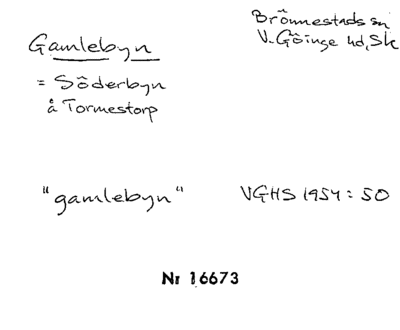 Gamlebyn
Brönnestads sn
V. Göinge hd, Sk
= Söderbyn
å Tormestorp
"gamlebyn"
VGHS 1954: 50
Nr 16673